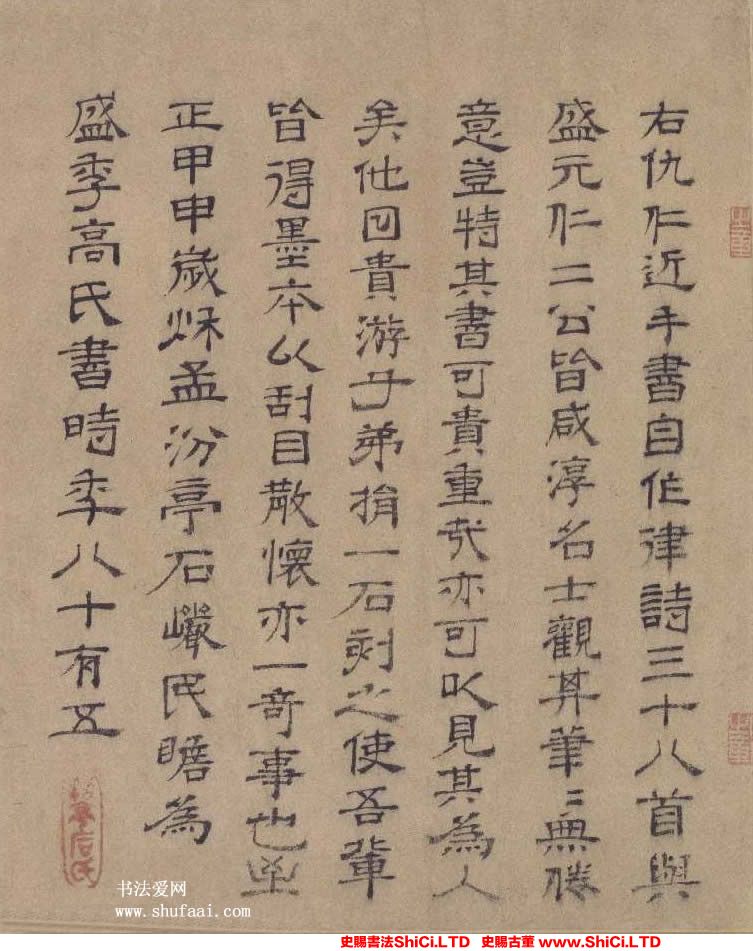 右仇仁近手書自作律詩三十八首與
盛元仁二公皆咸淳名士觀其筆〻無勝
意豈特其書可貴重哉亦可以見其為人
矣他日貴游子弟捐一石刻之使吾輩
皆得墨本以刮目散懷亦一奇事也至
正甲申歲秌孟汾亭石巖民瞻為
盛季高氏書時年八十有五
汾亭石氏
书法爱网
www.shufaai.com
史賜書法ShiCi.LTD 史賜古董 www.ShiCi.LTD